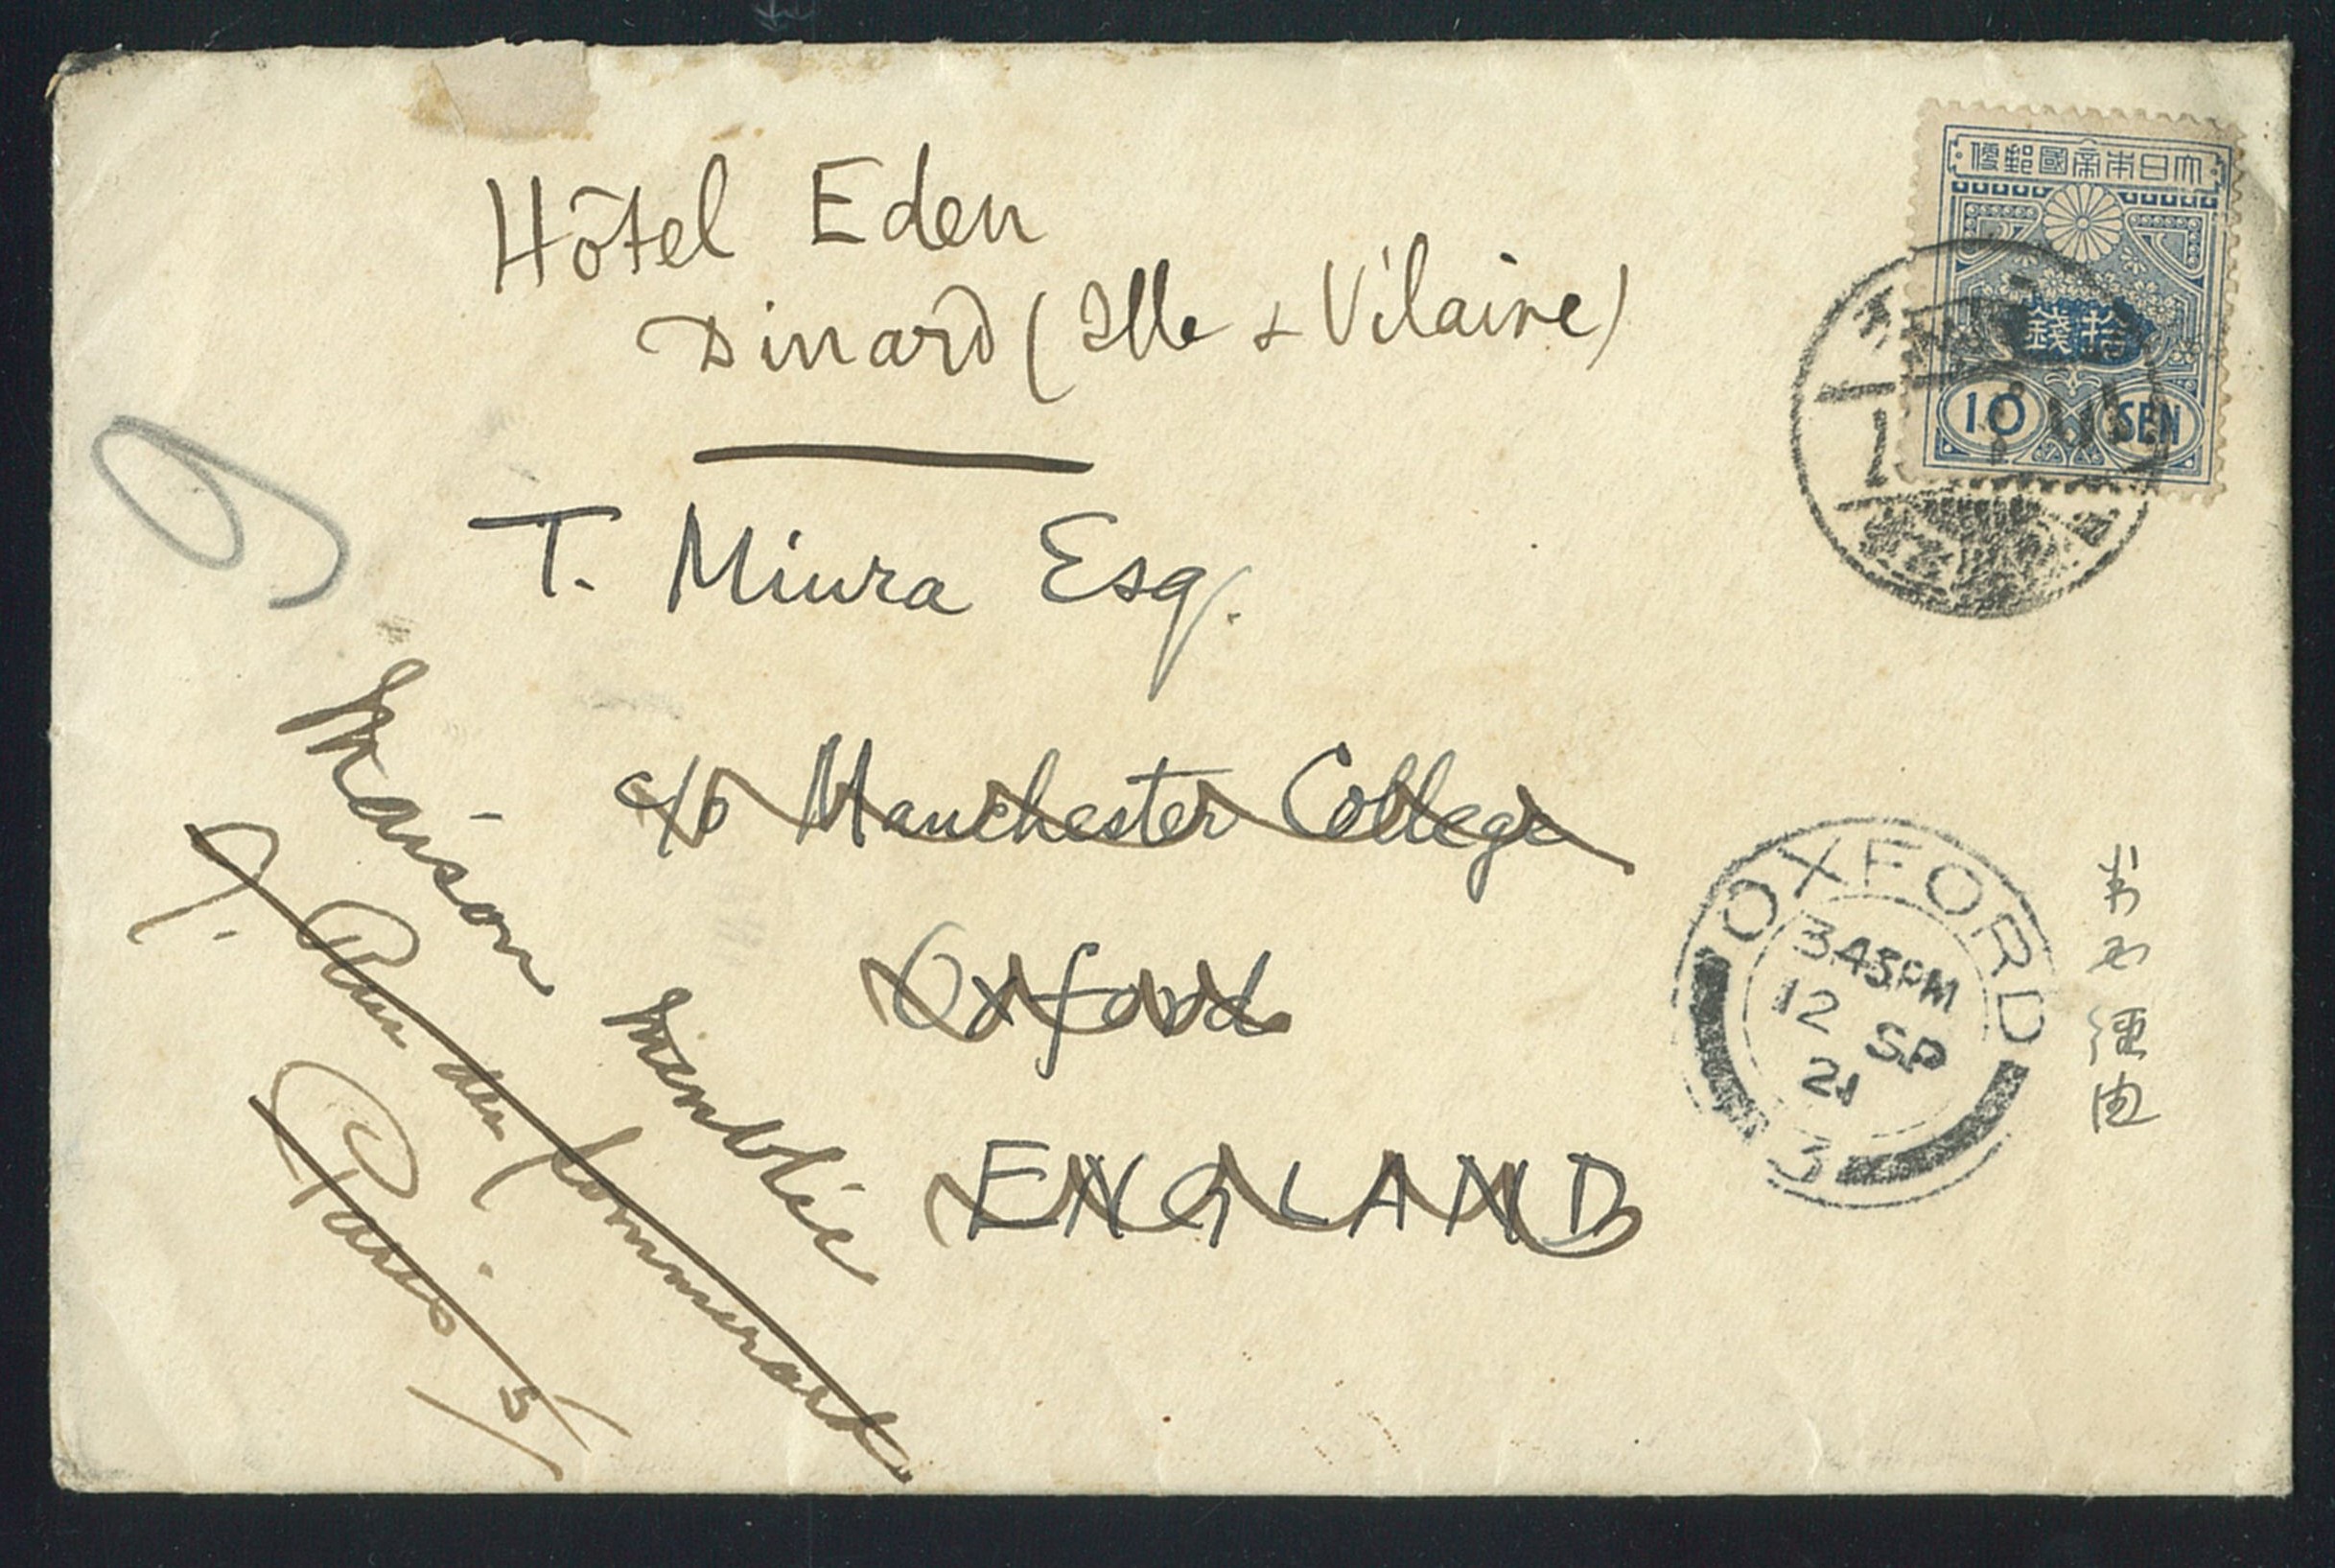 Hôtel Eden
Dinard (Ille & Vilaine)
T. Miura Esq.
c/o Manchester College
Oxford
ENGLAND
Maison Meublée
9. Rue du Sommerard
Paris 5
大日本帝國郵便
拾錢
10 SEN
OXFORD
3 45 PM
12 SP
21
3
米國經由
9